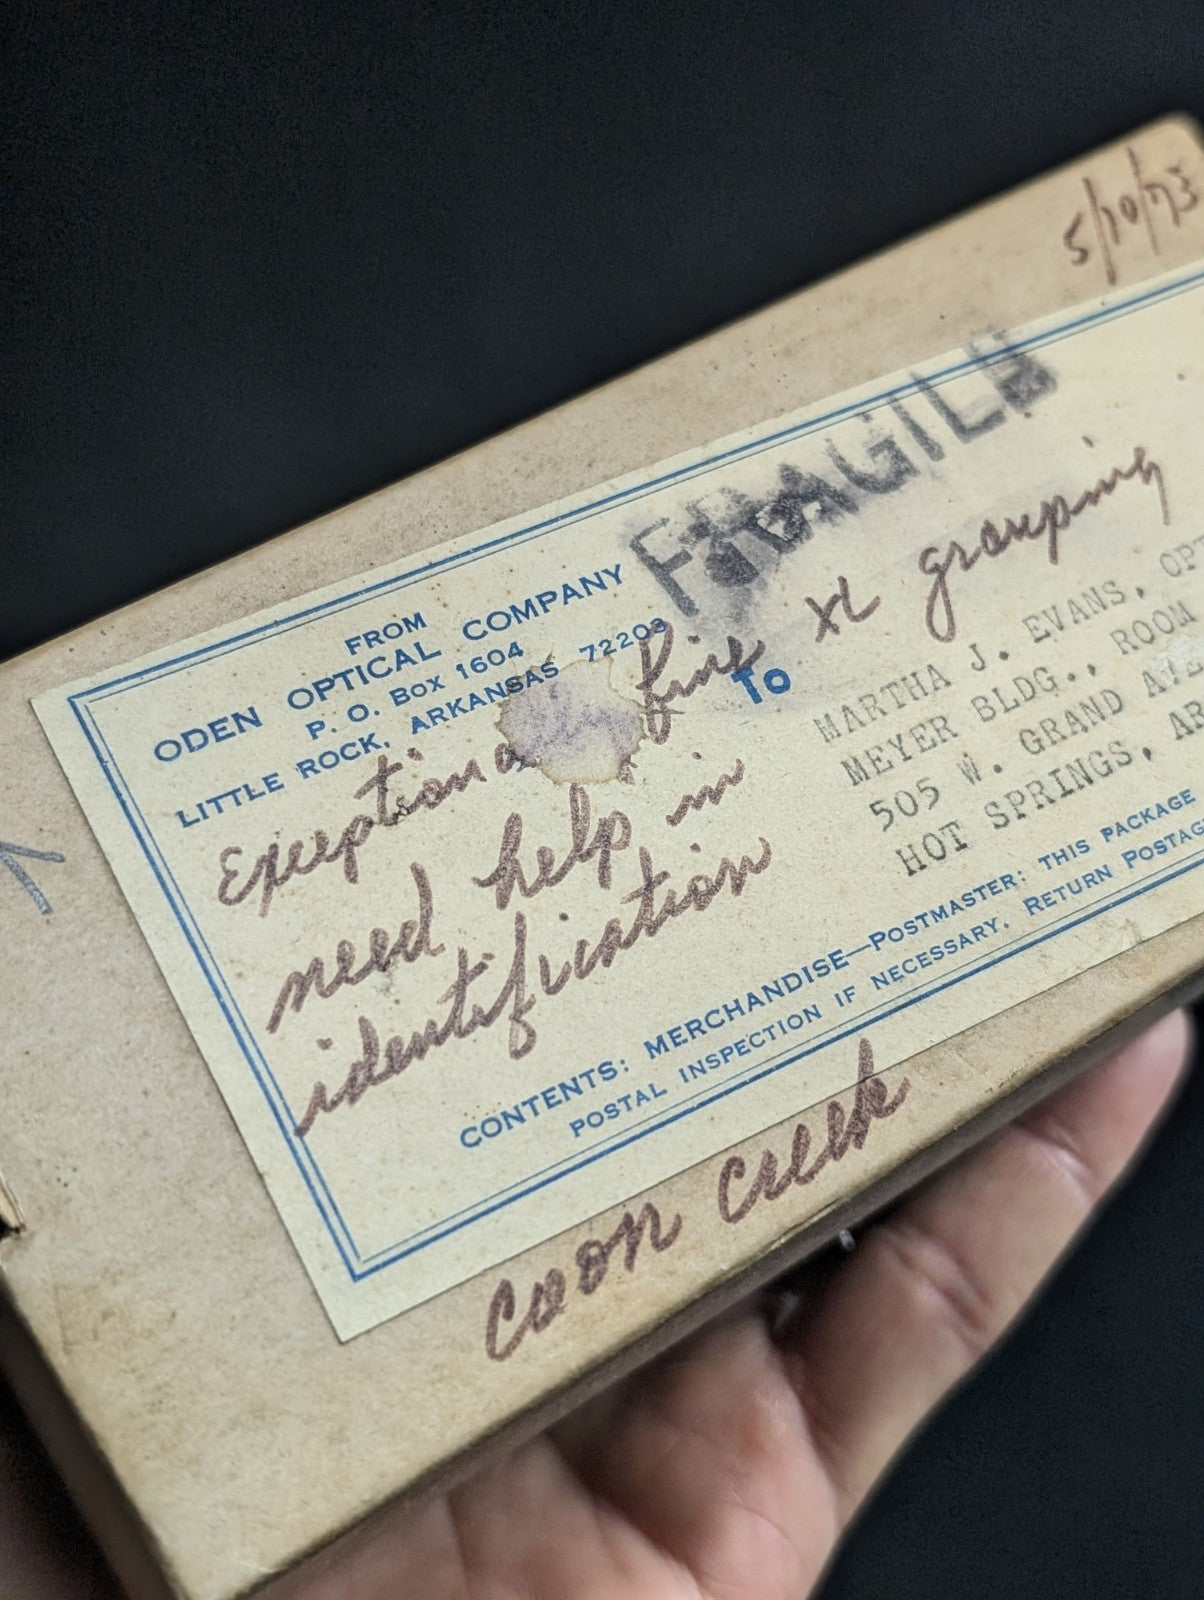 5/10/73
FRAGILE
FROM
ODEN OPTICAL COMPANY
P. O. Box 1604
LITTLE ROCK, ARKANSAS 72203
To
MARTHA J. EVANS, OPT
MEYER BLDG., ROOM
505 W. GRAND AVE
HOT SPRINGS, AR
Exceptional fine XL grouping
need help in
identification
CONTENTS: MERCHANDISE—POSTMASTER: THIS PACKAGE
POSTAL INSPECTION IF NECESSARY. RETURN POSTAG
Coon Creek